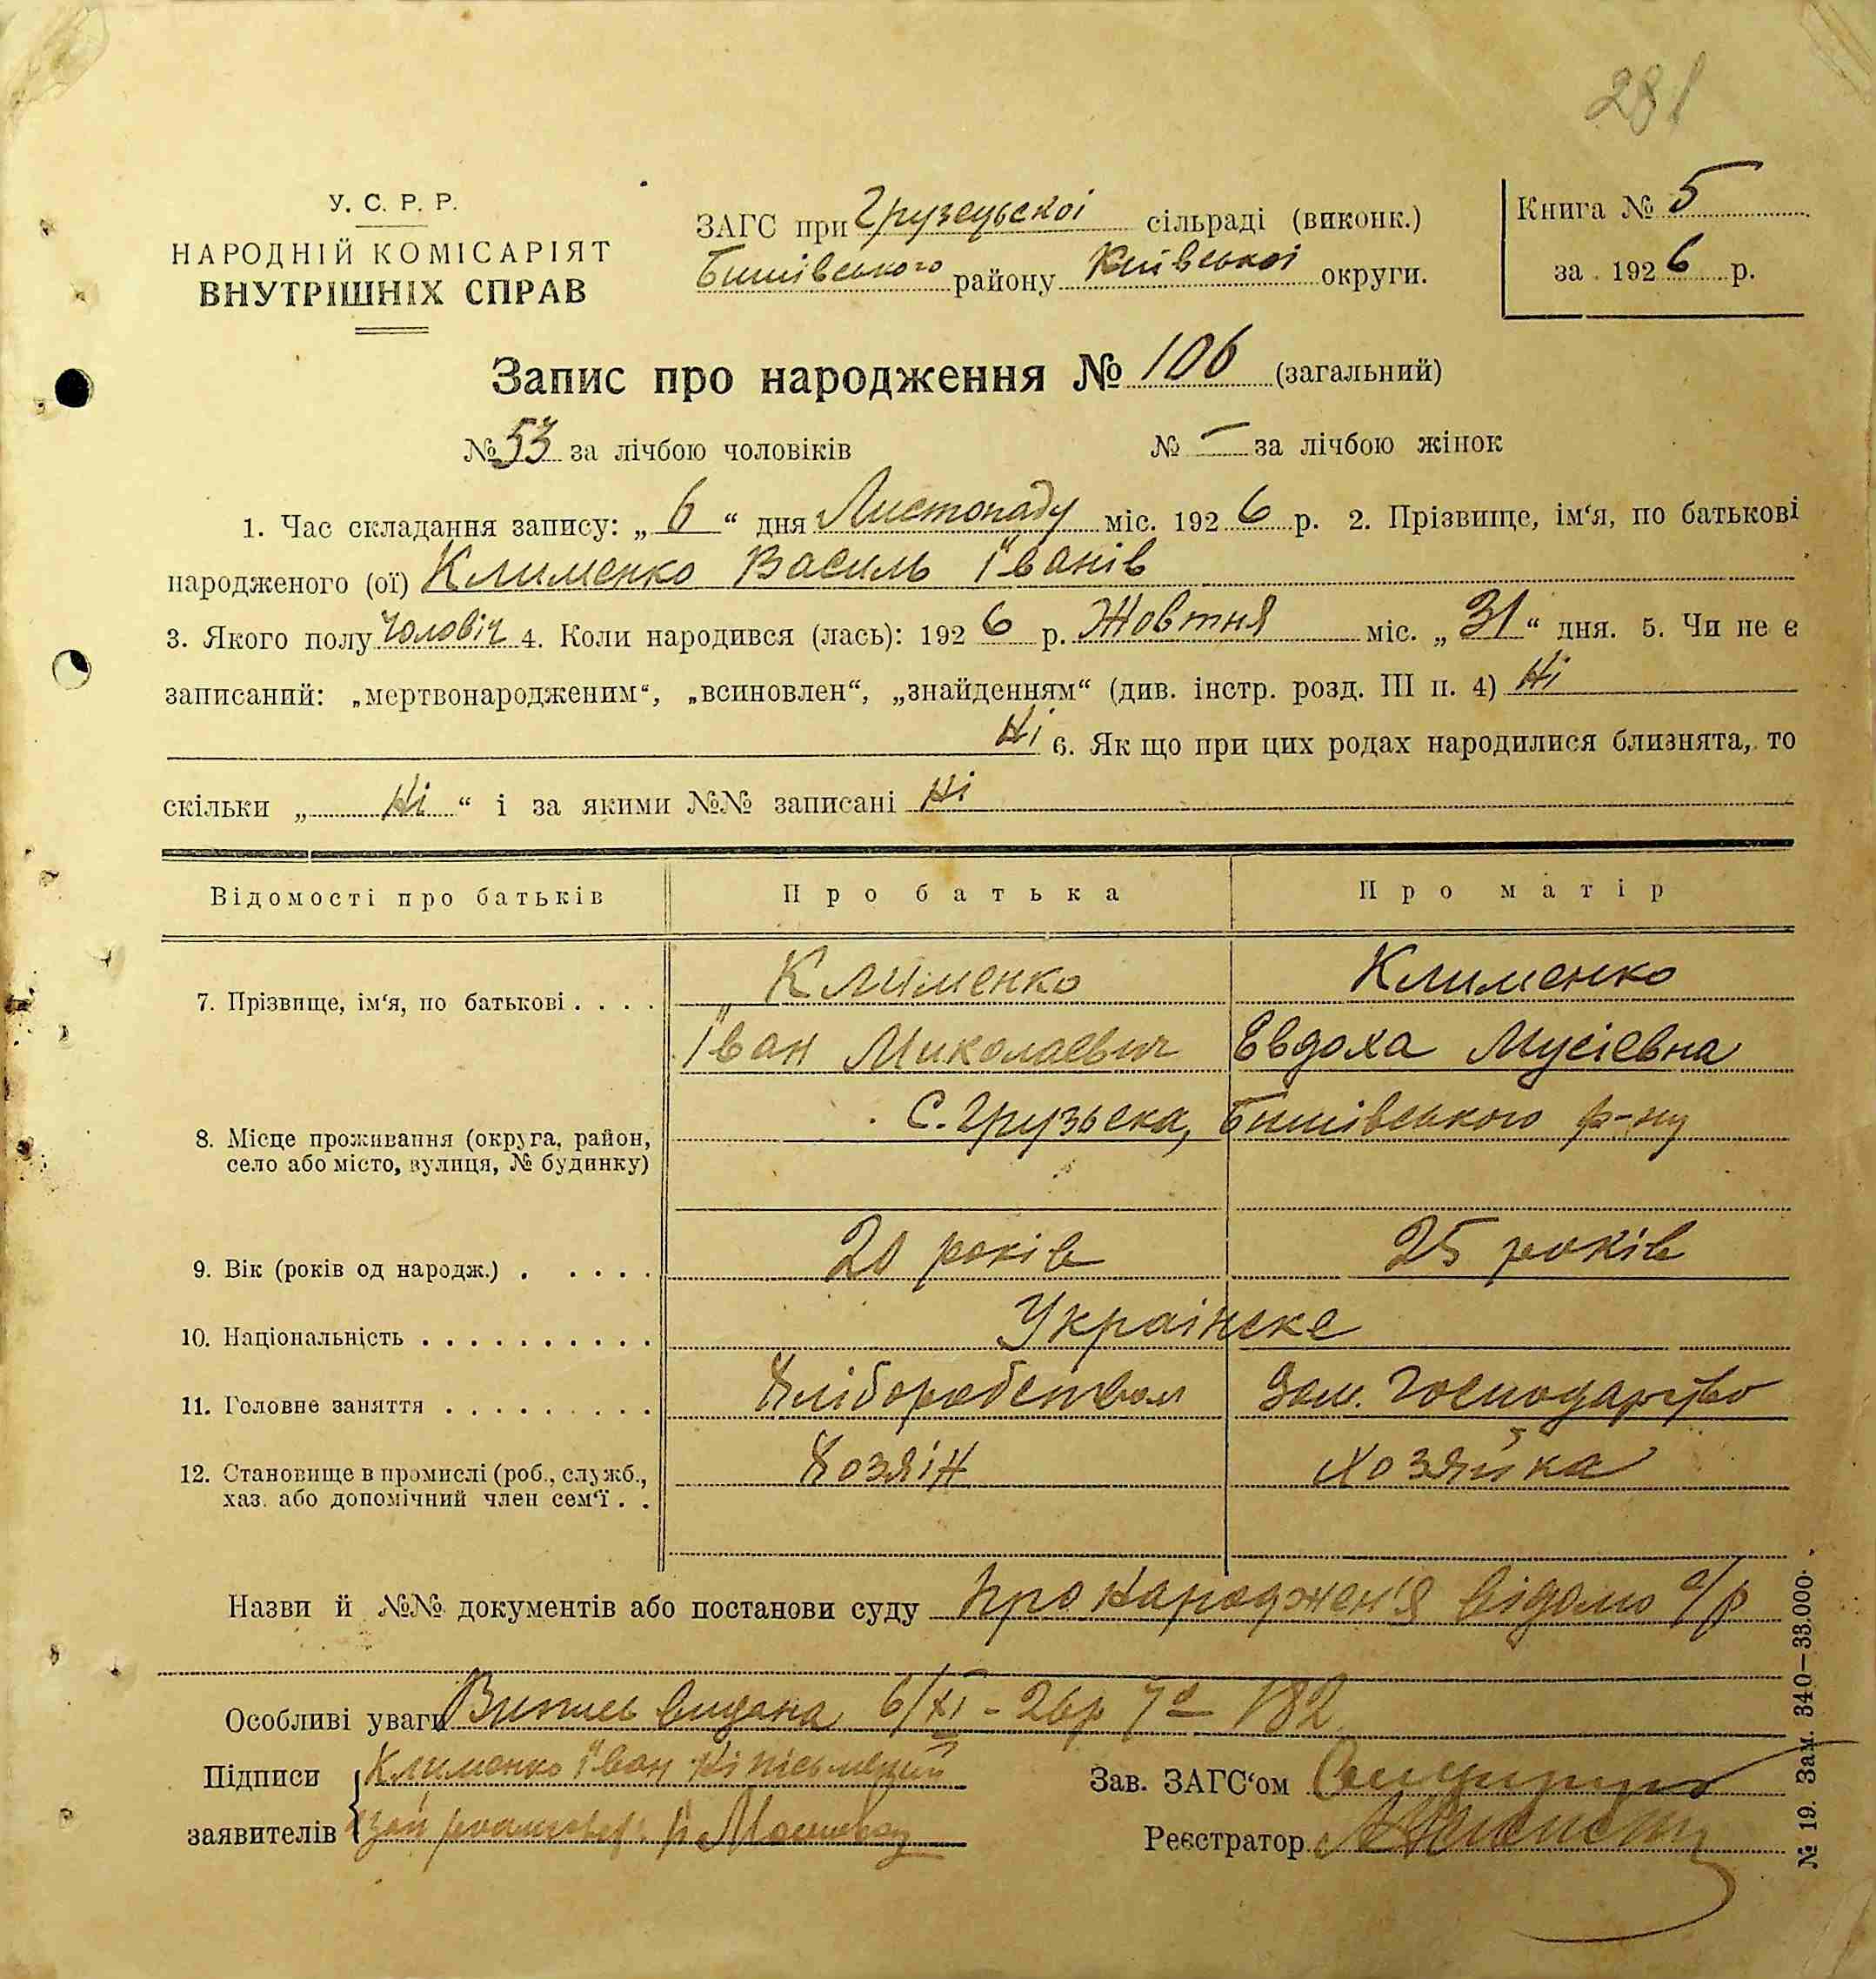 281
У. С. Р. Р.
НАРОДНІЙ КОМІСАРІЯТ
ВНУТРІШНІХ СПРАВ
ЗАГС при Грузецьскоі сільраді (виконк.)
Бишівського району Київськоі округи.
Книга № 5
за 1926 р.
Запис про народження № 106 (загальний)
№ 53 за лічбою чоловіків № — за лічбою жінок
1. Час складання запису: „ 6 “ дня Листопаду міс. 1926 р. 2. Прізвище, ім‘я, по батькові
народженого (ої) Клименко Василь Іванів
3. Якого полу чоловіч 4. Коли народився (лась): 1926 р. Жовтня міс. „ 31 “ дня. 5. Чи не є
записаний: „мертвонародженим“, „всиновлен“, „знайденням“ (див. інстр. розд. III п. 4) Ні
Ні 6. Як що при цих родах народилися близнята, то
скільки „ Ні “ і за якими №№ записані Ні
Відомості про батьків Про батька Про матір
7. Прізвище, ім‘я, по батькові . . . . Клименко Клименко
Іван Миколаевич Евдоха Мусіевна
С. Грузьска, Бишівського р-ну
8. Місце проживання (округа, район,
село або місто, вулиця, № будинку)
9. Вік (років од народж.) . . . . . 20 років 25 років
10. Національність . . . . . . . . . . Украінске
11. Головне заняття . . . . . . . . . Хліборобством Дом. Господарство
12. Становище в промислі (роб., служб., Хозяін Хозяйка
хаз. або допомічний член сем‘ї . .
Назви й №№ документів або постанови суду про народжен'я відомо с/р
Особливі уваги Випись видана 6/XI - 26р 182
Підписи Клименко Іван Ні письменій
заявителів
Зав. ЗАГС‘ом
Реєстратор
№ 19. Зам. 340—33.000.